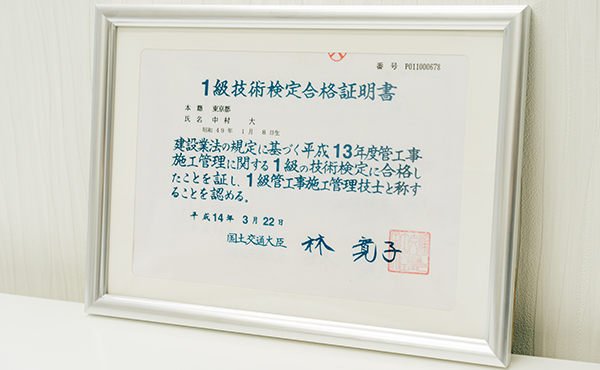 番号 P011000678
1級技術検定合格証明書
本籍 東京都
氏名 中村 大
昭和49年 1月 8日生
建設業法の規定に基づく平成13年度管工事
施工管理に関する1級の技術検定に合格し
たことを証し、1級管工事施工管理技士と称す
ることを認める。
平成14年 3月22日
国土交通大臣 林 寛子